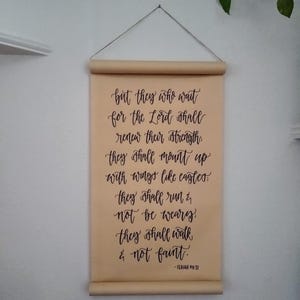 but they who wait
for the Lord shall
renew their strength;
they shall mount up
with wings like eagles;
they shall run &
not be weary;
they shall walk
& not faint.
-ISAIAH 40:31